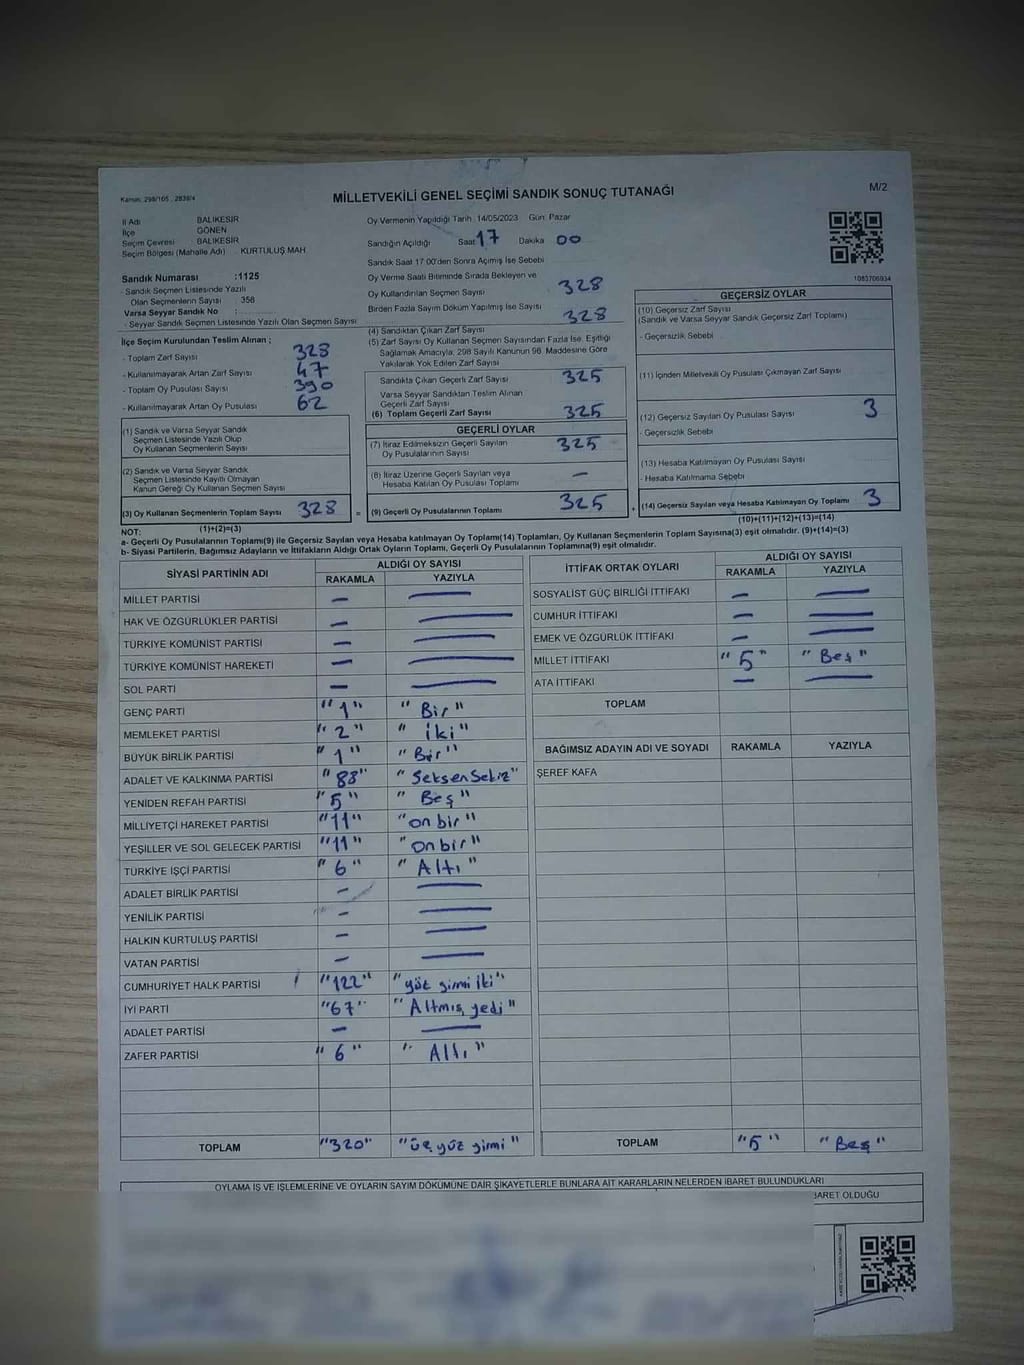 Kanun: 298/105 , 2839/4
MİLLETVEKİLİ GENEL SEÇİMİ SANDIK SONUÇ TUTANAĞI
M/2
İl Adı BALIKESİR
İlçe GÖNEN
Seçim Çevresi BALIKESİR
Seçim Bölgesi (Mahalle Adı) : KURTULUŞ MAH
Sandık Numarası :1125
- Sandık Seçmen Listesinde Yazılı
Olan Seçmenlerin Sayısı 358
Varsa Seyyar Sandık No :
- Seyyar Sandık Seçmen Listesinde Yazılı Olan Seçmen Sayısı
İlçe Seçim Kurulundan Teslim Alınan ;
- Toplam Zarf Sayısı 328
- Kullanılmayarak Artan Zarf Sayısı 47
- Toplam Oy Pusulası Sayısı 390
- Kullanılmayarak Artan Oy Pusulası 62
(1) Sandık ve Varsa Seyyar Sandık
Seçmen Listesinde Yazılı Olup
Oy Kullanan Seçmenlerin Sayısı
(2) Sandık ve Varsa Seyyar Sandık
Seçmen Listesinde Kayıtlı Olmayan
Kanun Gereği Oy Kullanan Seçmen Sayısı
(3) Oy Kullanan Seçmenlerin Toplam Sayısı 328 =
(1)+(2)=(3)
Oy Vermenin Yapıldığı Tarih : 14/05/2023 Gün: Pazar
Sandığın Açıldığı Saat 17 Dakika 00
Sandık Saat 17:00'den Sonra Açımış İse Sebebi
Oy Verme Saati Bitiminde Sırada Bekleyen ve
Oy Kullandırılan Seçmen Sayısı 328
Birden Fazla Sayım Döküm Yapılmış İse Sayısı 328
(4) Sandıktan Çıkan Zarf Sayısı
(5) Zarf Sayısı Oy Kullanan Seçmen Sayısından Fazla İse, Eşitliği
Sağlamak Amacıyla; 298 Sayılı Kanunun 98. Maddesine Göre
Yakılarak Yok Edilen Zarf Sayısı
Sandıkta Çıkan Geçerli Zarf Sayısı 325
Varsa Seyyar Sandıktan Teslim Alınan
Geçerli Zarf Sayısı
(6) Toplam Geçerli Zarf Sayısı 325
GEÇERLİ OYLAR
(7) İtiraz Edilmeksizin Geçerli Sayılan
Oy Pusulalarının Sayısı 325
(8) İtiraz Üzerine Geçerli Sayılan veya
Hesaba Katılan Oy Pusulası Toplamı –
(9) Geçerli Oy Pusulalarının Toplamı 325 +
1083706934
GEÇERSİZ OYLAR
(10) Geçersiz Zarf Sayısı
(Sandık ve Varsa Seyyar Sandık Geçersiz Zarf Toplamı)
- Geçersizlik Sebebi
(11) İçinden Milletvekili Oy Pusulası Çıkmayan Zarf Sayısı
(12) Geçersiz Sayılan Oy Pusulası Sayısı 3
- Geçersizlik Sebebi
(13) Hesaba Katılmayan Oy Pusulası Sayısı
- Hesaba Katılmama Sebebi
(14) Geçersiz Sayılan veya Hesaba Katılmayan Oy Toplamı 3
(10)+(11)+(12)+(13)=(14)
NOT:
a- Geçerli Oy Pusulalarının Toplamı(9) ile Geçersiz Sayılan veya Hesaba katılmayan Oy Toplamı(14) Toplamları, Oy Kullanan Seçmenlerin Toplam Sayısına(3) eşit olmalıdır. (9)+(14)=(3)
b- Siyasi Partilerin, Bağımsız Adayların ve İttifakların Aldığı Ortak Oyların Toplamı, Geçerli Oy Pusulalarının Toplamına(9) eşit olmalıdır.
SİYASİ PARTİNİN ADI ALDIĞI OY SAYISI
RAKAMLA YAZIYLA
MİLLET PARTİSİ – –
HAK VE ÖZGÜRLÜKLER PARTİSİ – –
TÜRKİYE KOMÜNİST PARTİSİ – –
TÜRKİYE KOMÜNİST HAREKETİ – –
SOL PARTİ – –
GENÇ PARTİ "1" "Bir"
MEMLEKET PARTİSİ "2" "iki"
BÜYÜK BİRLİK PARTİSİ "1" "Bir"
ADALET VE KALKINMA PARTİSİ "88" "SeksenSekiz"
YENİDEN REFAH PARTİSİ "5" "Beş"
MİLLİYETÇİ HAREKET PARTİSİ "11" "on bir"
YEŞİLLER VE SOL GELECEK PARTİSİ "11" "on bir"
TÜRKİYE İŞÇİ PARTİSİ "6" "Altı"
ADALET BİRLİK PARTİSİ – –
YENİLİK PARTİSİ – –
HALKIN KURTULUŞ PARTİSİ – –
VATAN PARTİSİ – –
CUMHURİYET HALK PARTİSİ "122" "yüz yirmi iki"
İYİ PARTİ "67" "Altmış yedi"
ADALET PARTİSİ – –
ZAFER PARTİSİ "6" "Altı"
TOPLAM "320" "üç yüz yirmi"
İTTİFAK ORTAK OYLARI ALDIĞI OY SAYISI
RAKAMLA YAZIYLA
SOSYALİST GÜÇ BİRLİĞİ İTTİFAKI – –
CUMHUR İTTİFAKI – –
EMEK VE ÖZGÜRLÜK İTTİFAKI – –
MİLLET İTTİFAKI "5" "Beş"
ATA İTTİFAKI – –
TOPLAM
BAĞIMSIZ ADAYIN ADI VE SOYADI RAKAMLA YAZIYLA
ŞEREF KAFA
TOPLAM "5" "Beş"
OYLAMA İŞ VE İŞLEMLERİNE VE OYLARIN SAYIM DÖKÜMÜNE DAİR ŞİKAYETLERLE BUNLARA AİT KARARLARIN NELERDEN İBARET BULUNDUKLARI
BARET OLDUĞU